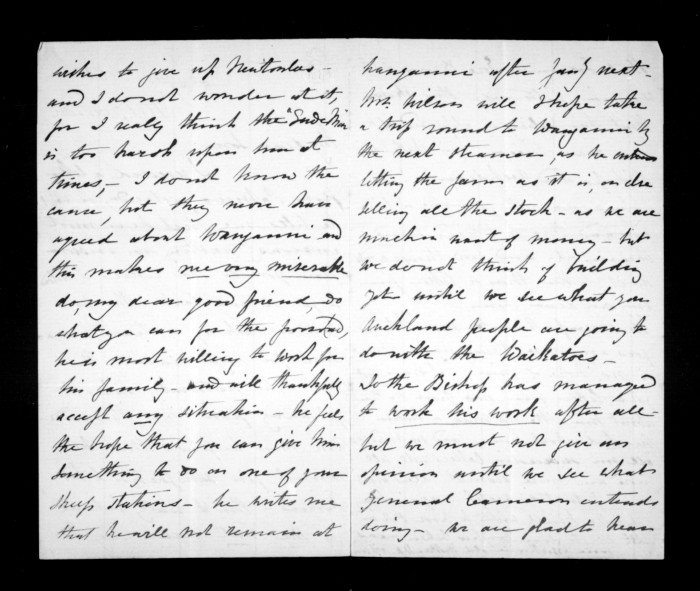 wishes to give up
and I do not wonder at it,
for I really think the
is too harsh upon him at
times,- I do not know the
cause, but they never have
agreed about Wanganui and
this makes me very miserable
do, my dear good friend, do
what you can for the poor lad,
he is most willing to work for
his family - and will thankfully
accept any situation - he feels
the hope that you can give him
something to do on one of your
sheep stations - he writes me
that he will not remain at
Wanganui after Jany next -
Mrs Wilson will I hope take
a trip round to Wanganui by
the next steamer, as he intends
letting the farm as it is, or else
selling all the stock - as we are
much in want of money - but
we do not think of building
yet until we see what you
Auckland people are going to
do with the Waikatoes -
So the Bishop has managed
to work his work after all -
but we must not give our
opinion until we see what
General Cameron intends
doing - we are glad to hear